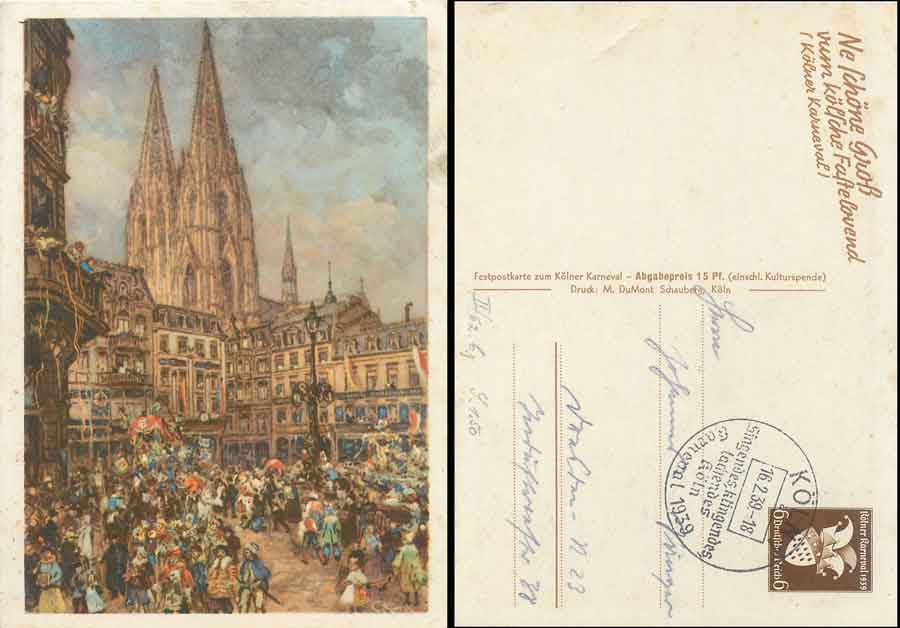 Ne schöne Groß
vum kölsche Fastelovend
(Kölner Karneval)
Festpostkarte zum Kölner Karneval – Abgabepreis 15 Pf. (einschl. Kulturspende)
Druck: M. DuMont Schauberg, Köln
Herrn
Johannes
N 23
78
KÖLN
16.2.39-18
Singendes, klingendes,
lachendes
Köln
Karneval 1939
Kölner Karneval 1939
6 Deutsches Reich 6